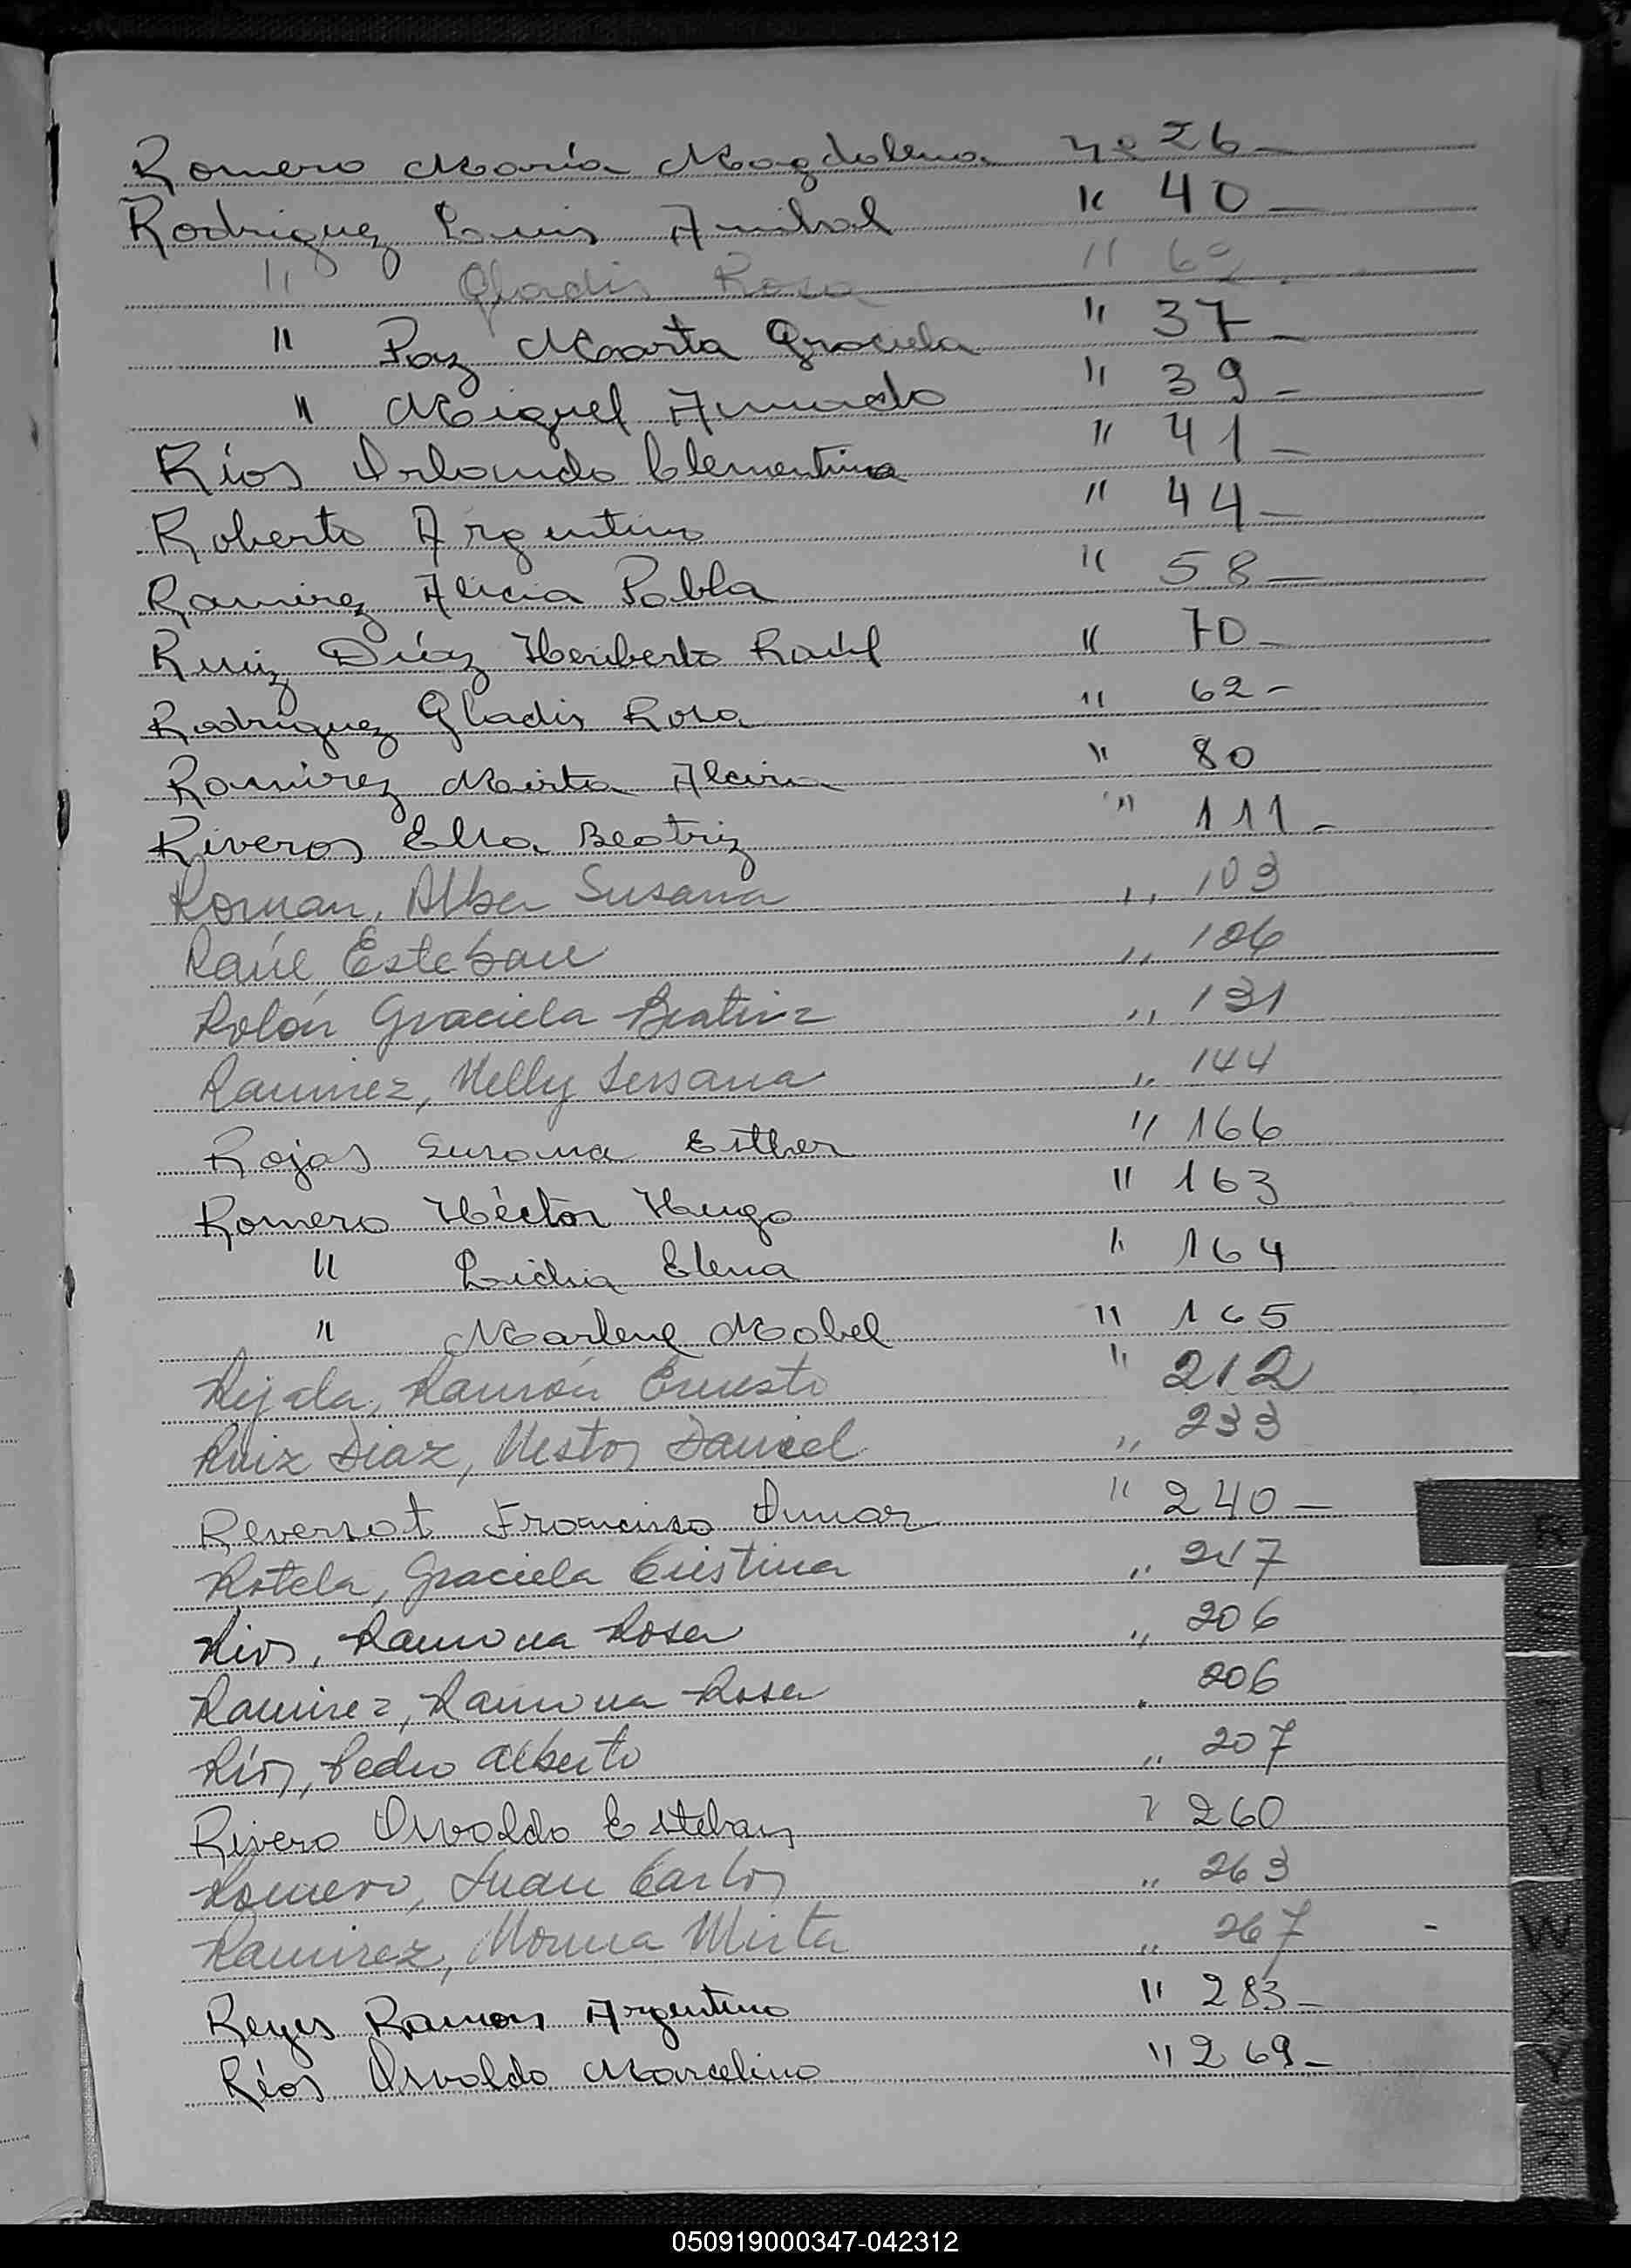 Romero María Magdalena nº 26 -
Rodriguez Luis Anibal " 40 -
" Gladis Rosa " 62 -
" Paz Marta Graciela " 37 -
" Miguel Armando " 39 -
Ríos Orlando Clementino " 41 -
Roberto Argentino " 44 -
Ramirez Alicia Pabla " 58 -
Ruiz Díaz Heriberto Raúl " 70 -
Rodriguez Gladis Rosa " 62 -
Ramírez Mirta Alcira " 80
Riveros Elsa Beatriz " 111 -
Roman, Alba Susana " 103
Raúl Esteban " 106
Rolón Graciela Beatriz " 131
Ramirez, Nelly Susana " 144
Rojas Susana Esther " 166
Romero Héctor Hugo " 163
" Lidia Elena " 164
" Marlene Mabel " 165
Rejala, Ramón Ernesto " 212
Ruiz Diaz, Nestor Daniel " 233
Reversat Francisco Omar " 240 -
Rotela, Graciela Cristina " 247
Rios, Ramona Rosa " 206
Ramirez, Ramona Rosa " 206
Ríos, Pedro Alberto " 207
Rivero Osvaldo Esteban " 260
Romero, Juan Carlos " 263
Ramirez, Norma Mirta " 267 -
Reyes Ramon Argentino " 283 -
Ríos Osvaldo Marcelino " 269 -
R
S
T
U
V
W
X
Y
Z
050919000347-042312